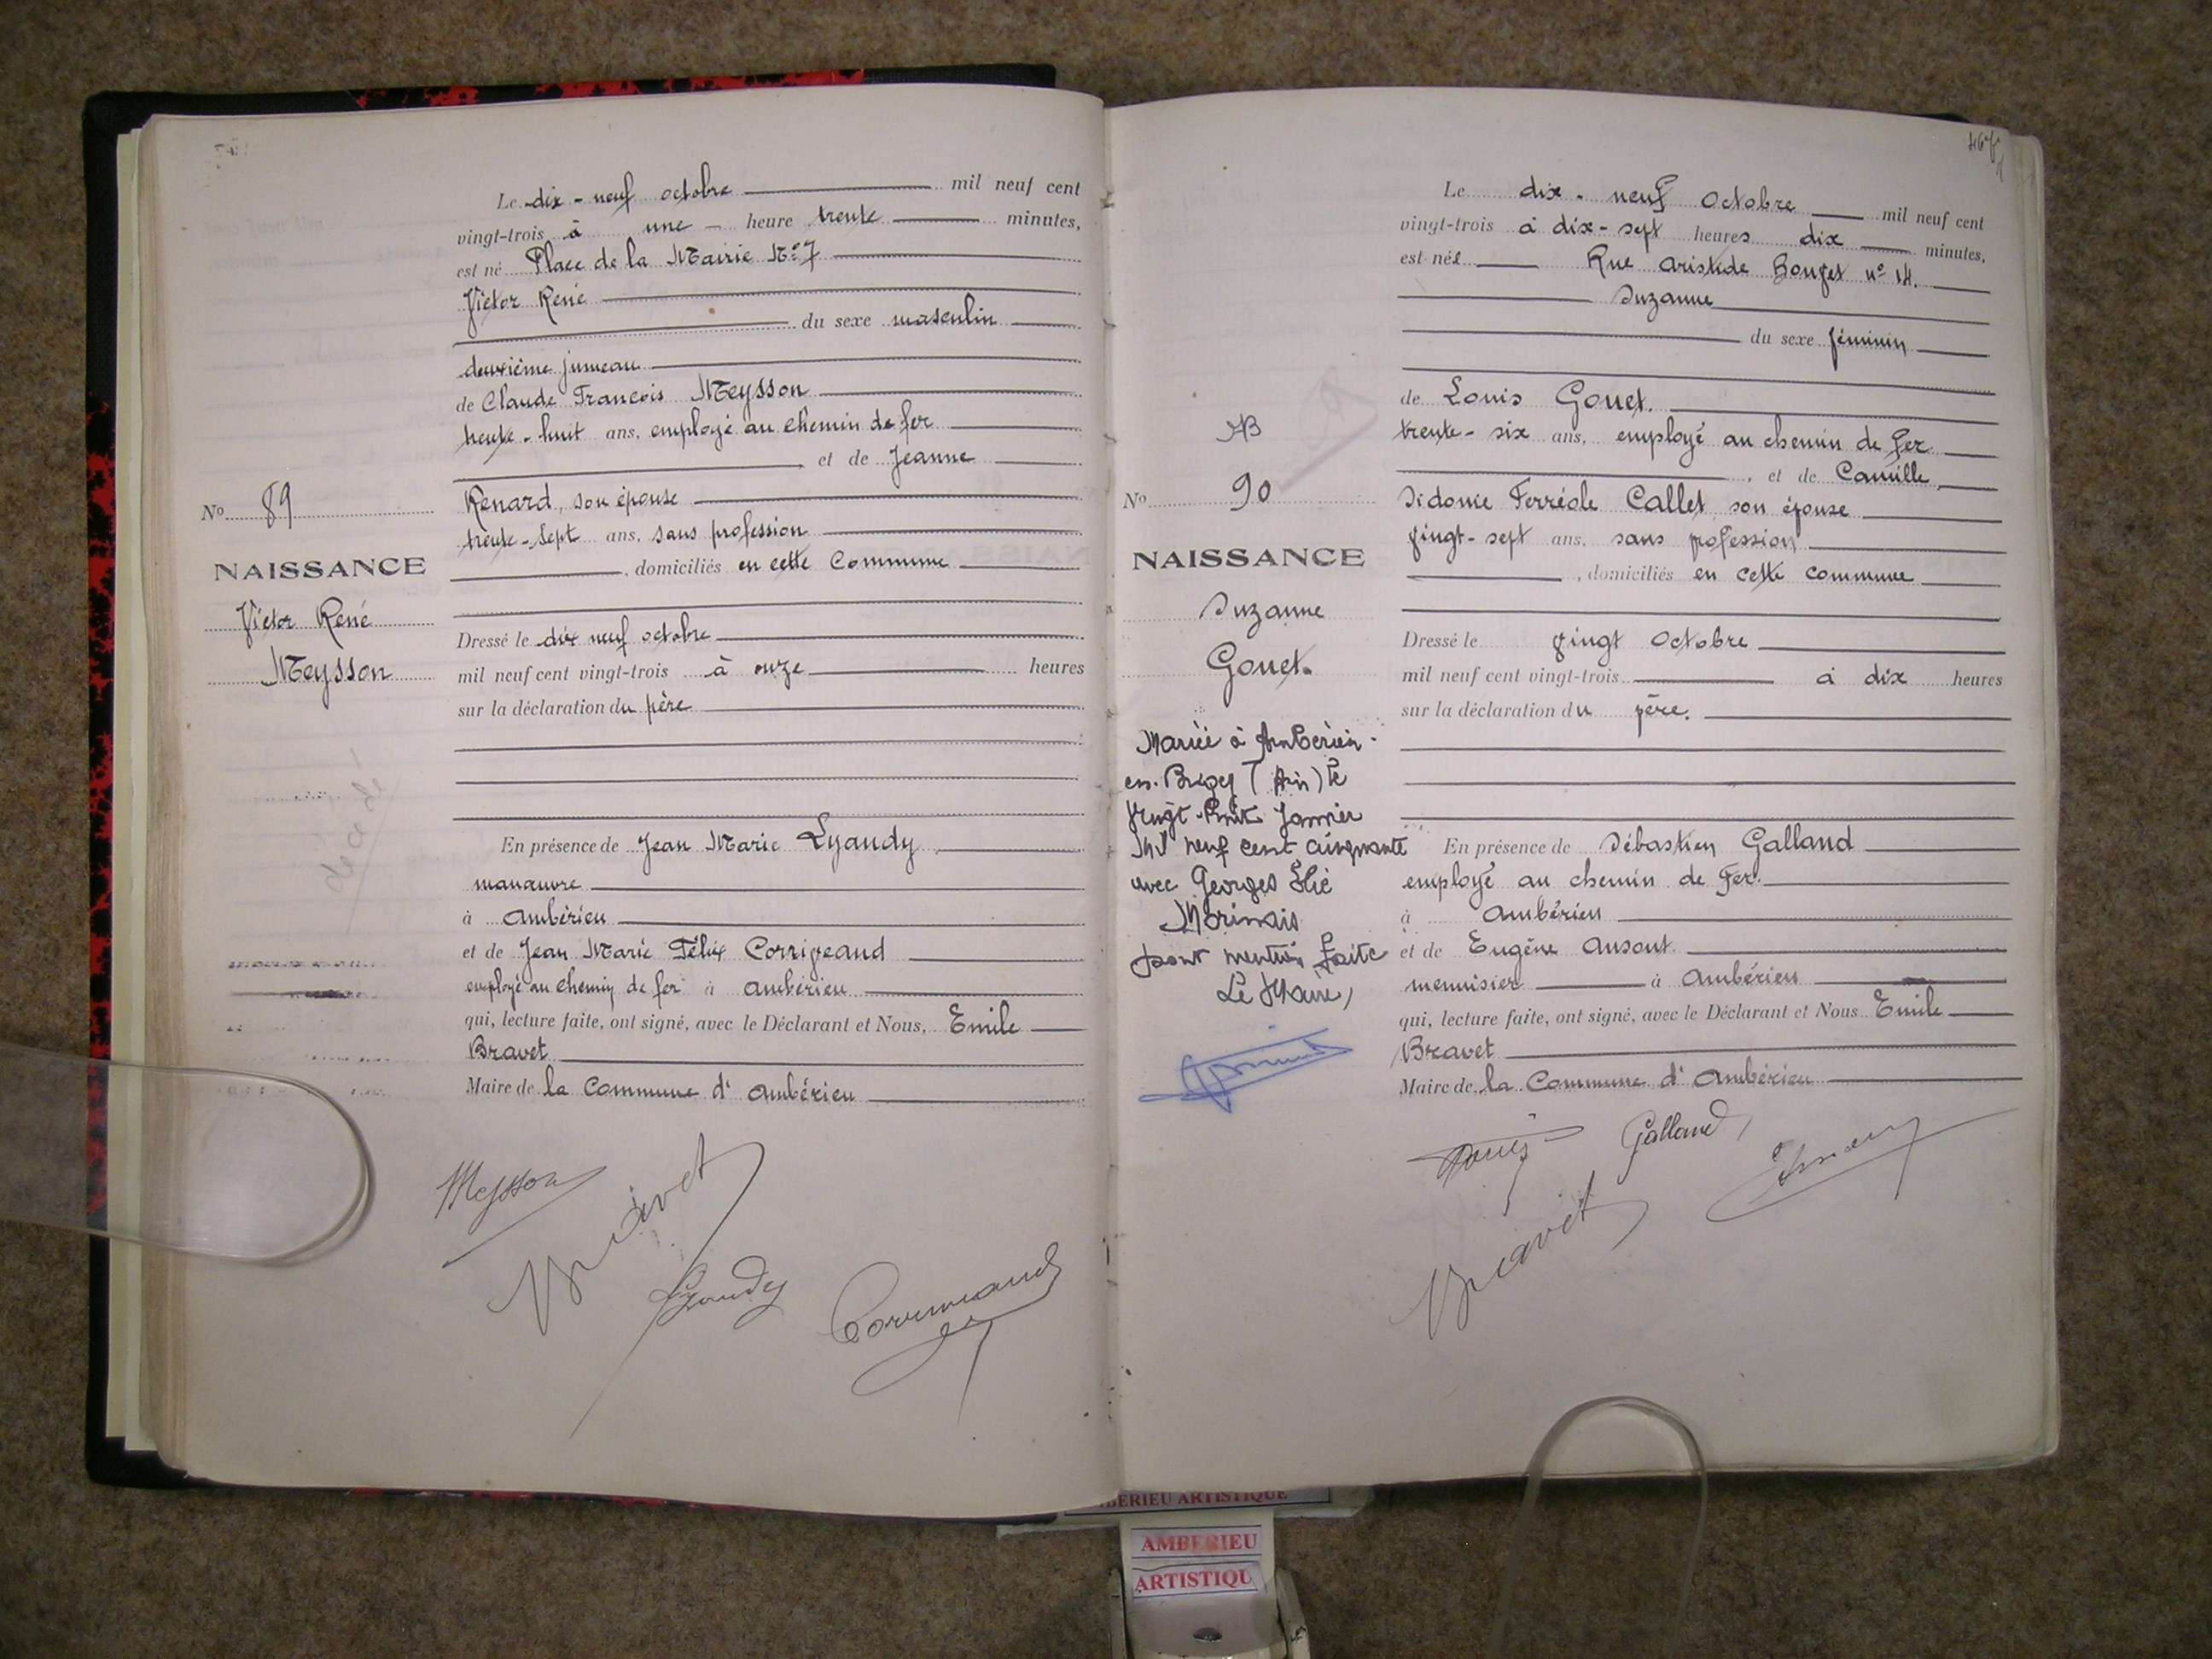 Le dix-neuf octobre mil neuf cent
vingt-trois à une heure trente minutes,
est né Place de la Mairie No 7
Victor René
du sexe masculin
deuxième jumeau
de Claude François Meysson
trente-huit ans, employé au chemin de fer
et de Jeanne
Renard, son épouse
trente-sept ans, sans profession
, domiciliés en cette Commune
Dressé le dix neuf octobre
mil neuf cent vingt-trois à onze heures
sur la déclaration du père
En présence de Jean Marie Lyaudy
manœuvre
à Ambérieu
et de Jean Marie Félix
employé au chemin de fer à Ambérieu
qui, lecture faite, ont signé, avec le Déclarant et Nous, Emile
Bravet
Maire de la Commune d'Ambérieu
No 89
NAISSANCE
Victor René
Meysson
Meysson
Bravet
Lyaudy
Le dix-neuf Octobre mil neuf cent
vingt-trois à dix-sept heures dix minutes,
est née Rue Aristide no 14.
Suzanne
du sexe féminin
de Louis Gouet.
trente-six ans, employé au chemin de fer
, et de Camille,
Sidonie Ferréole Callet, son épouse
vingt-sept ans, sans profession
, domiciliés en cette commune
Dressé le vingt Octobre
mil neuf cent vingt-trois à dix heures
sur la déclaration du père.
En présence de Sébastien Galland
employé au chemin de Fer.
à Ambérieu
et de Eugène
menuisier à Ambérieu
qui, lecture faite, ont signé, avec le Déclarant et Nous Emile
Bravet
Maire de la Commune d'Ambérieu
No 90
NAISSANCE
Suzanne
Gouet.
Mariée à Ambérieu-
en-Bugey (Ain) le
vingt-huit Janvier
Mil neuf cent cinquante
avec Georges Elie
Morinais
pour mention faite
Le Maire,
Galland
Bravet
AMBERIEU ARTISTIQUE
AMBERIEU
ARTISTIQU